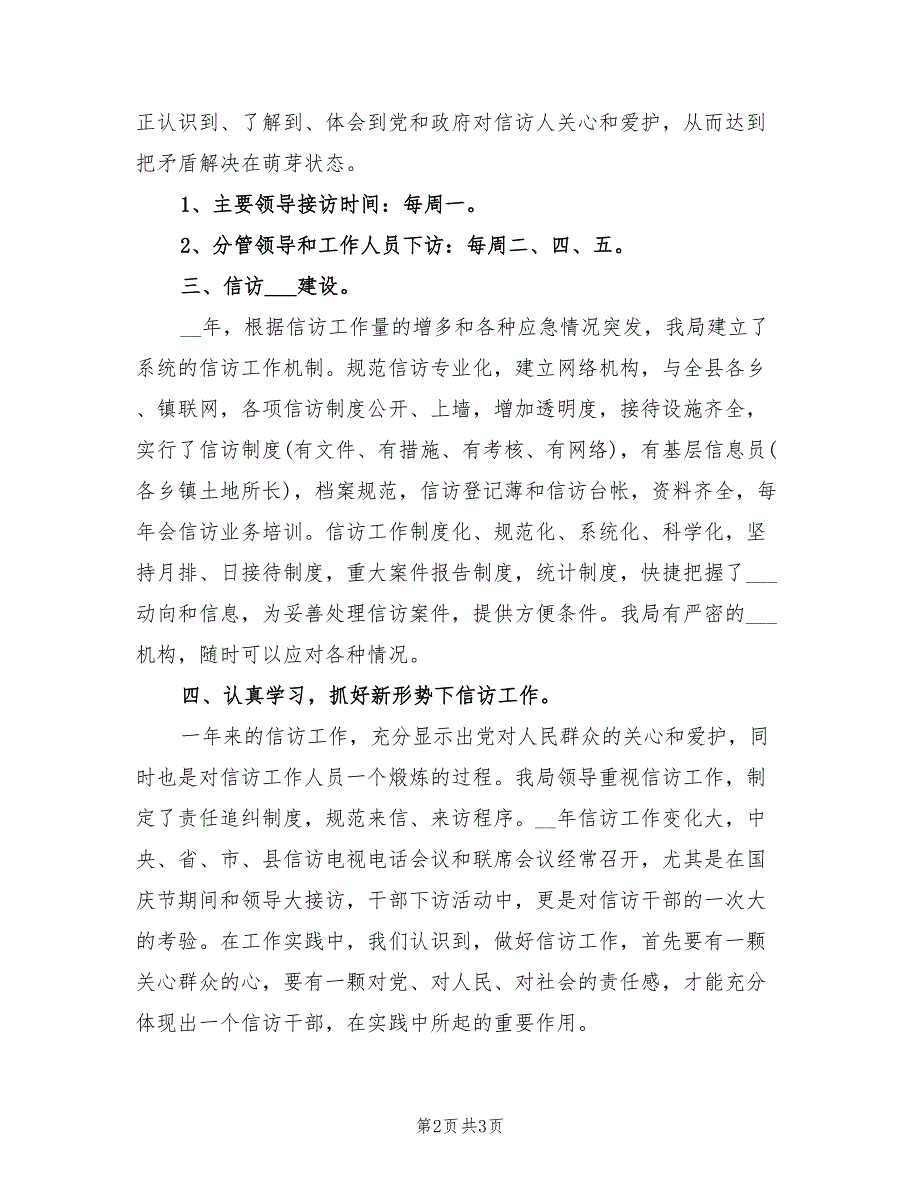 正认识到、了解到、体会到党和政府对信访人关心和爱护，从而达到
把矛盾解决在萌芽状态。
1、主要领导接访时间：每周一。
2、分管领导和工作人员下访：每周二、四、五。
三、信访___建设。
__年，根据信访工作量的增多和各种应急情况突发，我局建立了
系统的信访工作机制。规范信访专业化，建立网络机构，与全县各乡
、镇联网，各项信访制度公开、上墙，增加透明度，接待设施齐全，
实行了信访制度(有文件、有措施、有考核、有网络)，有基层信息员(
各乡镇土地所长)，档案规范，信访登记薄和信访台帐，资料齐全，每
年会信访业务培训。信访工作制度化、规范化、系统化、科学化，坚
持月排、日接待制度，重大案件报告制度，统计制度，快捷把握了___
动向和信息，为妥善处理信访案件，提供方便条件。我局有严密的___
机构，随时可以应对各种情况。
四、认真学习，抓好新形势下信访工作。
一年来的信访工作，充分显示出党对人民群众的关心和爱护，同
时也是对信访工作人员一个煅炼的过程。我局领导重视信访工作，制
定了责任追纠制度，规范来信、来访程序。__年信访工作变化大，中
央、省、市、县信访电视电话会议和联席会议经常召开，尤其是在国
庆节期间和领导大接访，干部下访活动中，更是对信访干部的一次大
的考验。在工作实践中，我们认识到，做好信访工作，首先要有一颗
关心群众的心，要有一颗对党、对人民、对社会的责任感，才能充分
体现出一个信访干部，在实践中所起的重要作用。
第2页 共3页